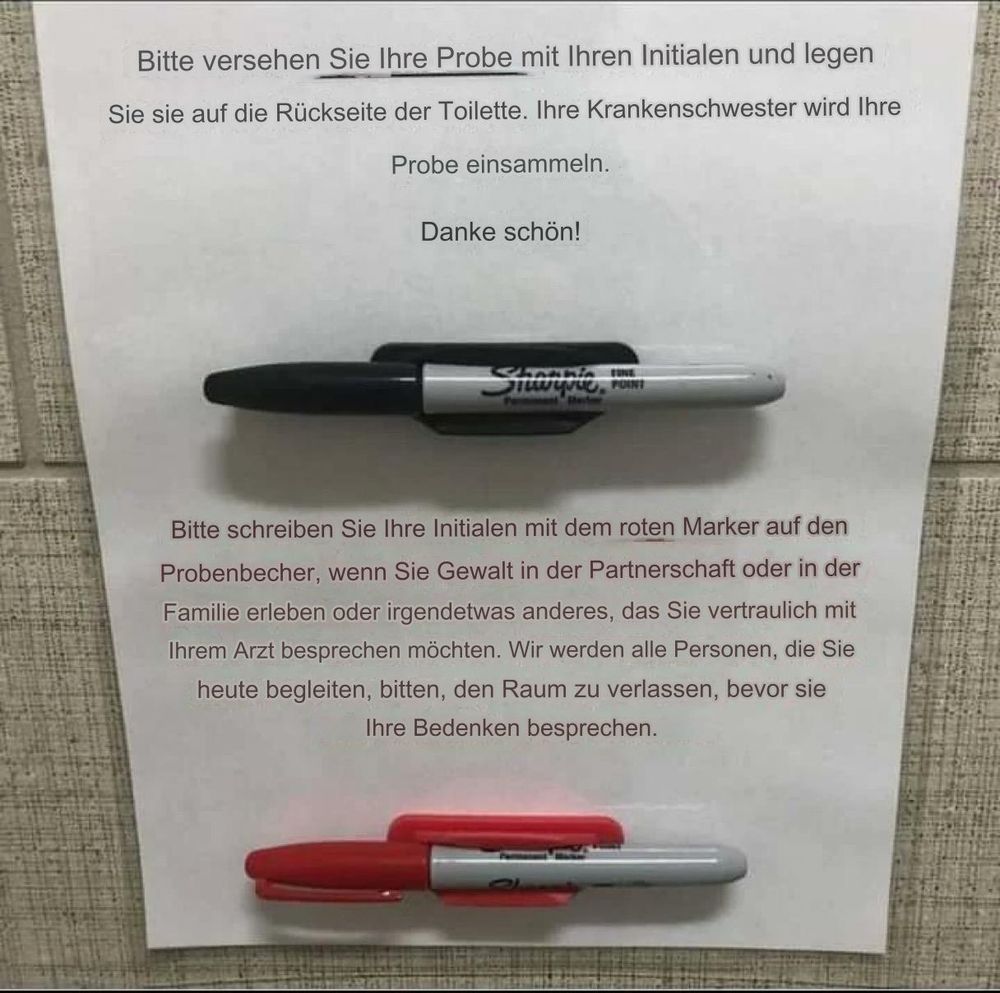 Bitte versehen Sie Ihre Probe mit Ihren Initialen und legen
Sie sie auf die Rückseite der Toilette. Ihre Krankenschwester wird Ihre
Probe einsammeln.
Danke schön!
Sharpie. FINE
POINT
Permanent Marker
Bitte schreiben Sie Ihre Initialen mit dem roten Marker auf den
Probenbecher, wenn Sie Gewalt in der Partnerschaft oder in der
Familie erleben oder irgendetwas anderes, das Sie vertraulich mit
Ihrem Arzt besprechen möchten. Wir werden alle Personen, die Sie
heute begleiten, bitten, den Raum zu verlassen, bevor sie
Ihre Bedenken besprechen.
Permanent Marker